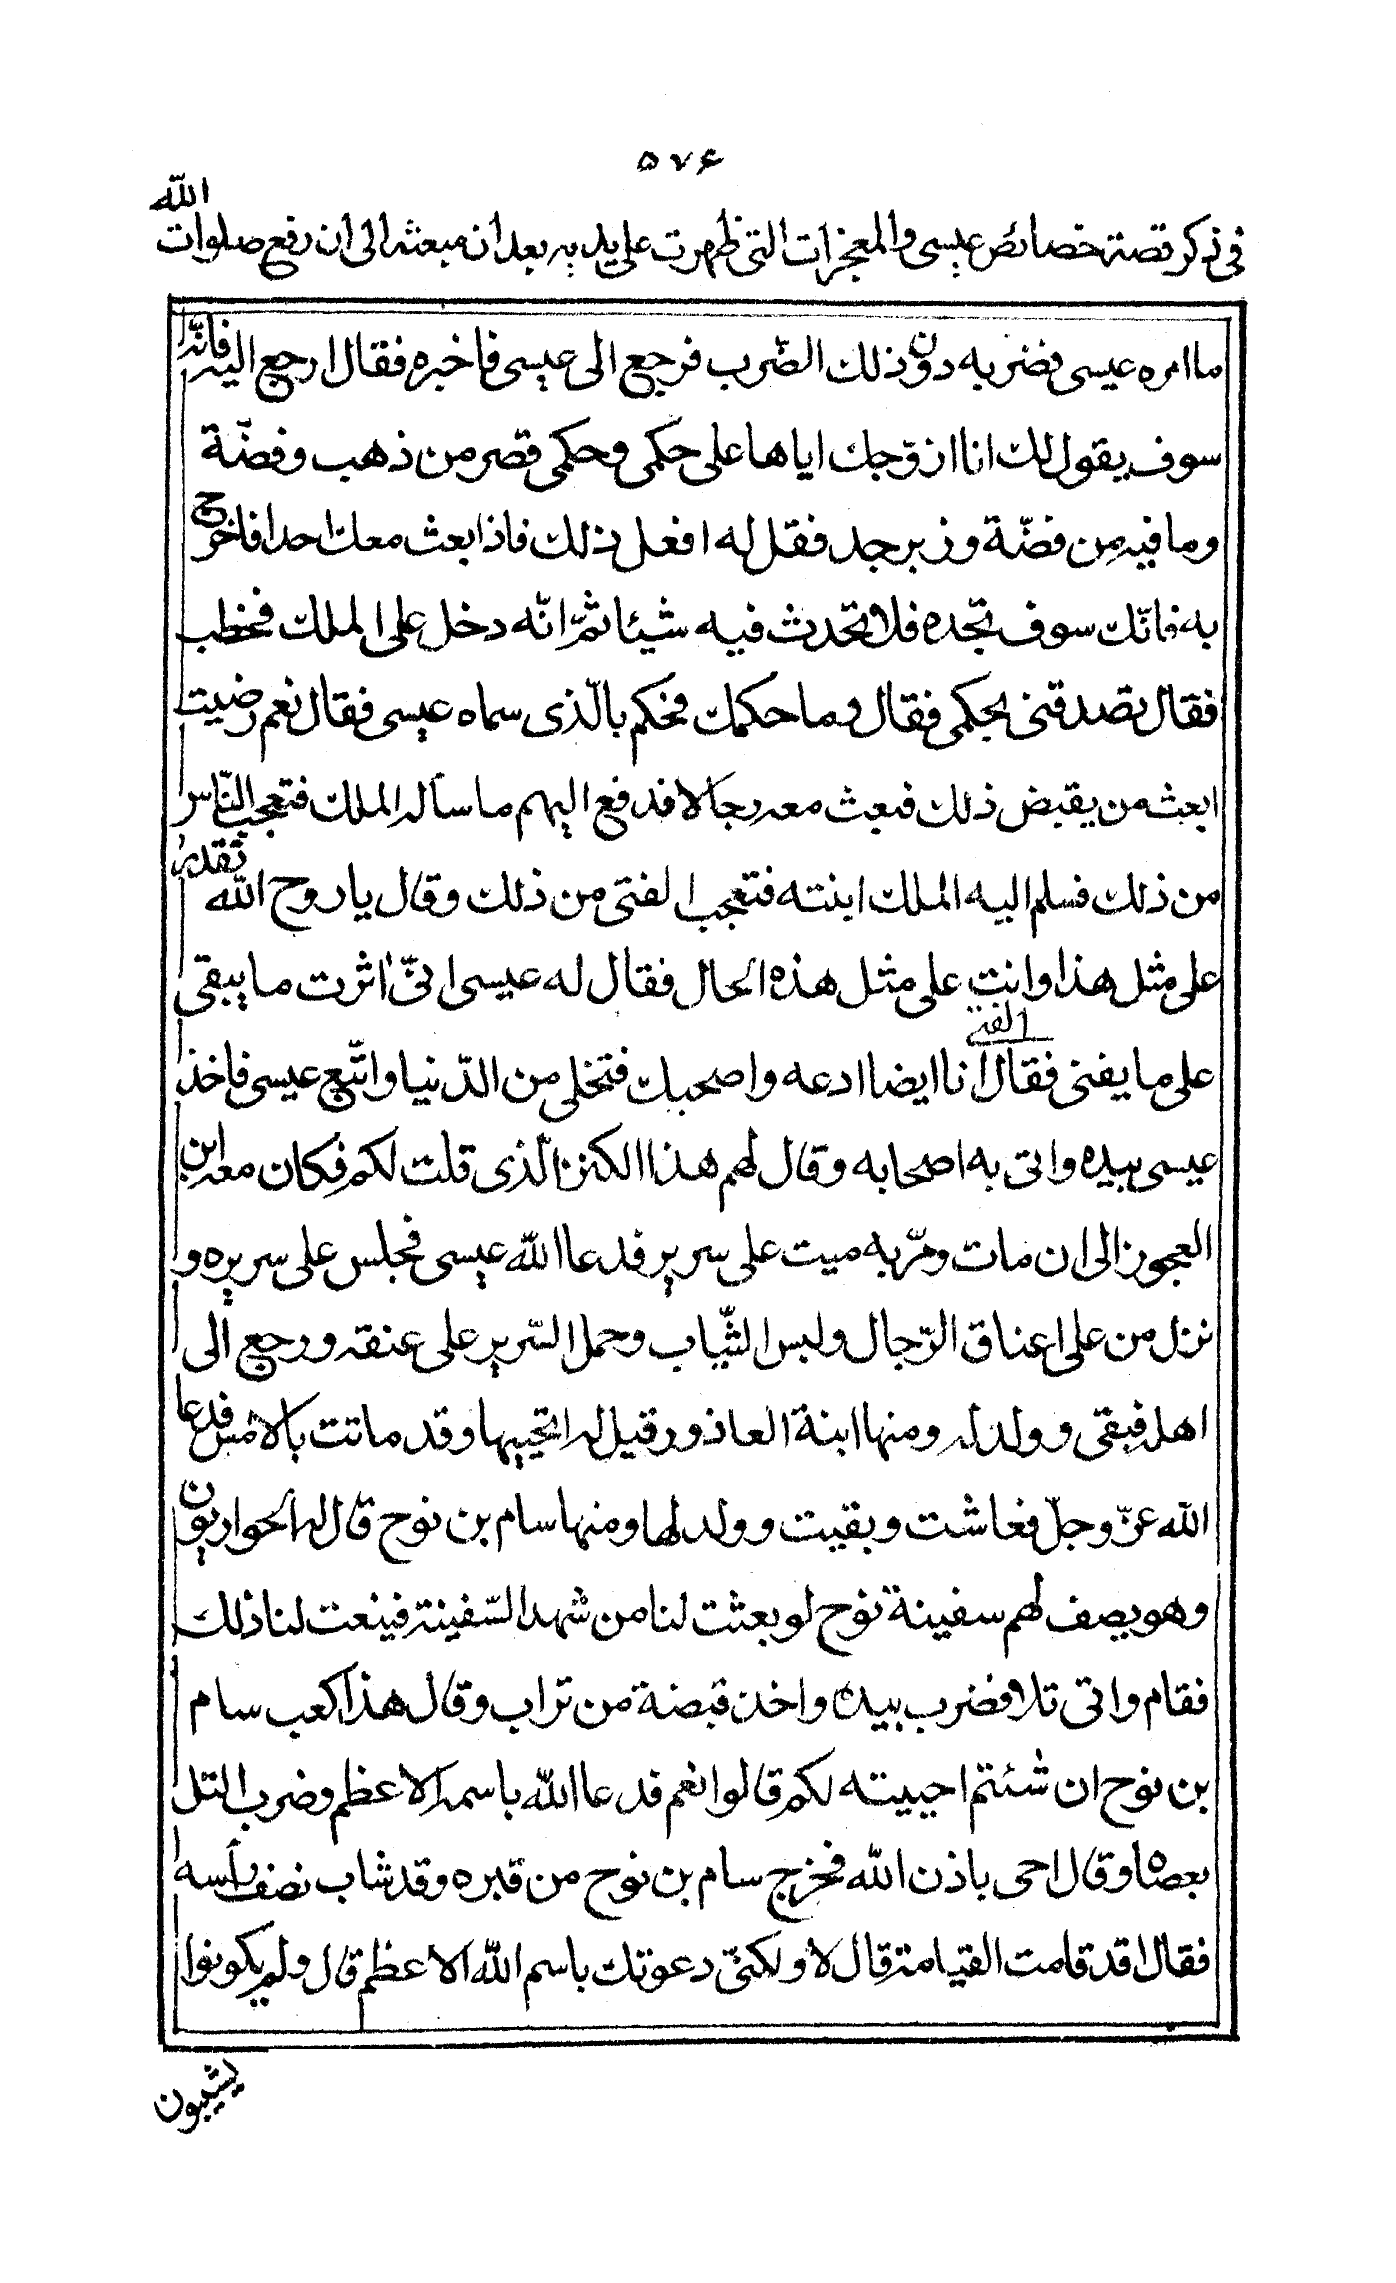 ۵۷۶
فى ذكر قصة خصائص عيسى والمعجزات التى ظهرت على يديه بعد ان مبعثه الى ان رفع صلوات الله
ما امره عيسى فضربه دون ذلك الضّرب فرجع الى عيسى فاخبره فقال ارجع اليه فانّه
سوف يقول لك انا ازوّجك اياها على حكمى وحكمى قصر من ذهب وفضّة
وما فيه من فضّة وزبرجد فقل له افعل ذلك فاذا بعث معك احدا فاخرج
به فانّك سوف تجده فلا تحدث فيه شيئا ثمّ انّه دخل على الملك فخطب
فقال تصدقنى بحكمى فقال وما حكمك فحكم بالّذى سماه عيسى فقال نعم رضيت
ابعث من يقبض ذلك فبعث معه رجالا فدفع اليهم ما ساله الملك فتعجب النّاس
من ذلك فسلم اليه الملك ابنته فتعجب الفتى من ذلك وقال يا روح الله تقدر
على مثل هذا وانت على مثل هذه الحال فقال له عيسى انّى اثرت ما يبقى
على ما يفنى فقال الفتى انا ايضا ادعه واصحبك فتخلى من الدّنيا واتّبع عيسى فاخذ
عيسى بيده واتى به اصحابه وقال لهم هذا الكنز الّذى قلت لكم فكان معه ابن
العجوز الى ان مات ومرّ به ميت على سرير فدعا الله عيسى فجلس على سريره و
نزل من على اعناق الرّجال ولبس الثّياب وحمل السّرير على عنقه ورجع الى
اهله فبقى وولد له ومنها ابنة العاذور قيل له اتحييها وقد ماتت بالامس فدعا
الله عزّ وجلّ فعاشت وبقيت وولد لها ومنها سام بن نوح قال له الحواريون
وهو يصف لهم سفينة نوح لو بعثت لنا من شهد السّفينة فينعت لنا ذلك
فقام واتى تلا فضرب بيده واخذ قبضة من تراب وقال هذا كعب سام
بن نوح ان شئتم احييته لكم قالوا نعم فدعا الله باسمه الاعظم وضرب التل
بعصاه وقال احى باذن الله فخرج سام بن نوح من قبره وقد شاب نصف رأسه
فقال اقد قامت القيامة قال لا ولكنّى دعوتك باسم الله الاعظم قال ولم يكونوا
يشيبون